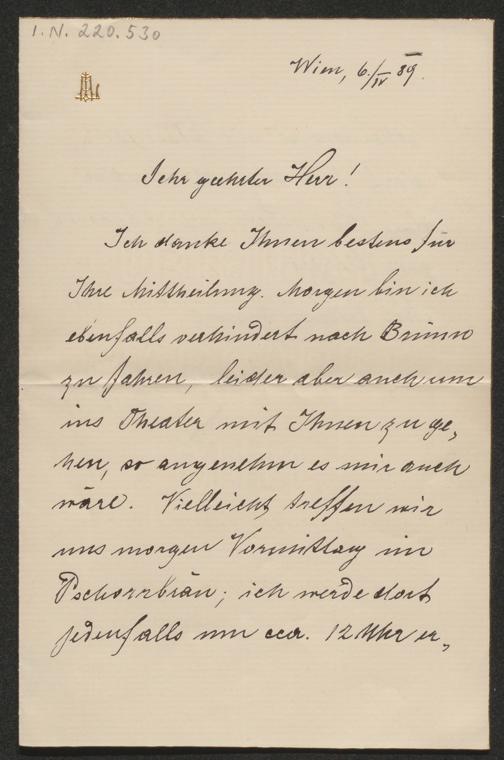 I.N. 220.530
Wien, 6./IV 89.
Sehr geehrter Herr!
Ich danke Ihnen bestens für
Ihre Mittheilung. Morgen bin ich
ebenfalls verhindert nach Brünn
zu fahren, leider aber auch um
ins Theater mit Ihnen zu ge„
hen, so angenehm es mir auch
wäre. Vielleicht treffen wir
uns morgen Vormittag im
Pschorrbräu; ich werde dort
jedenfalls um cca. 12 Uhr er„